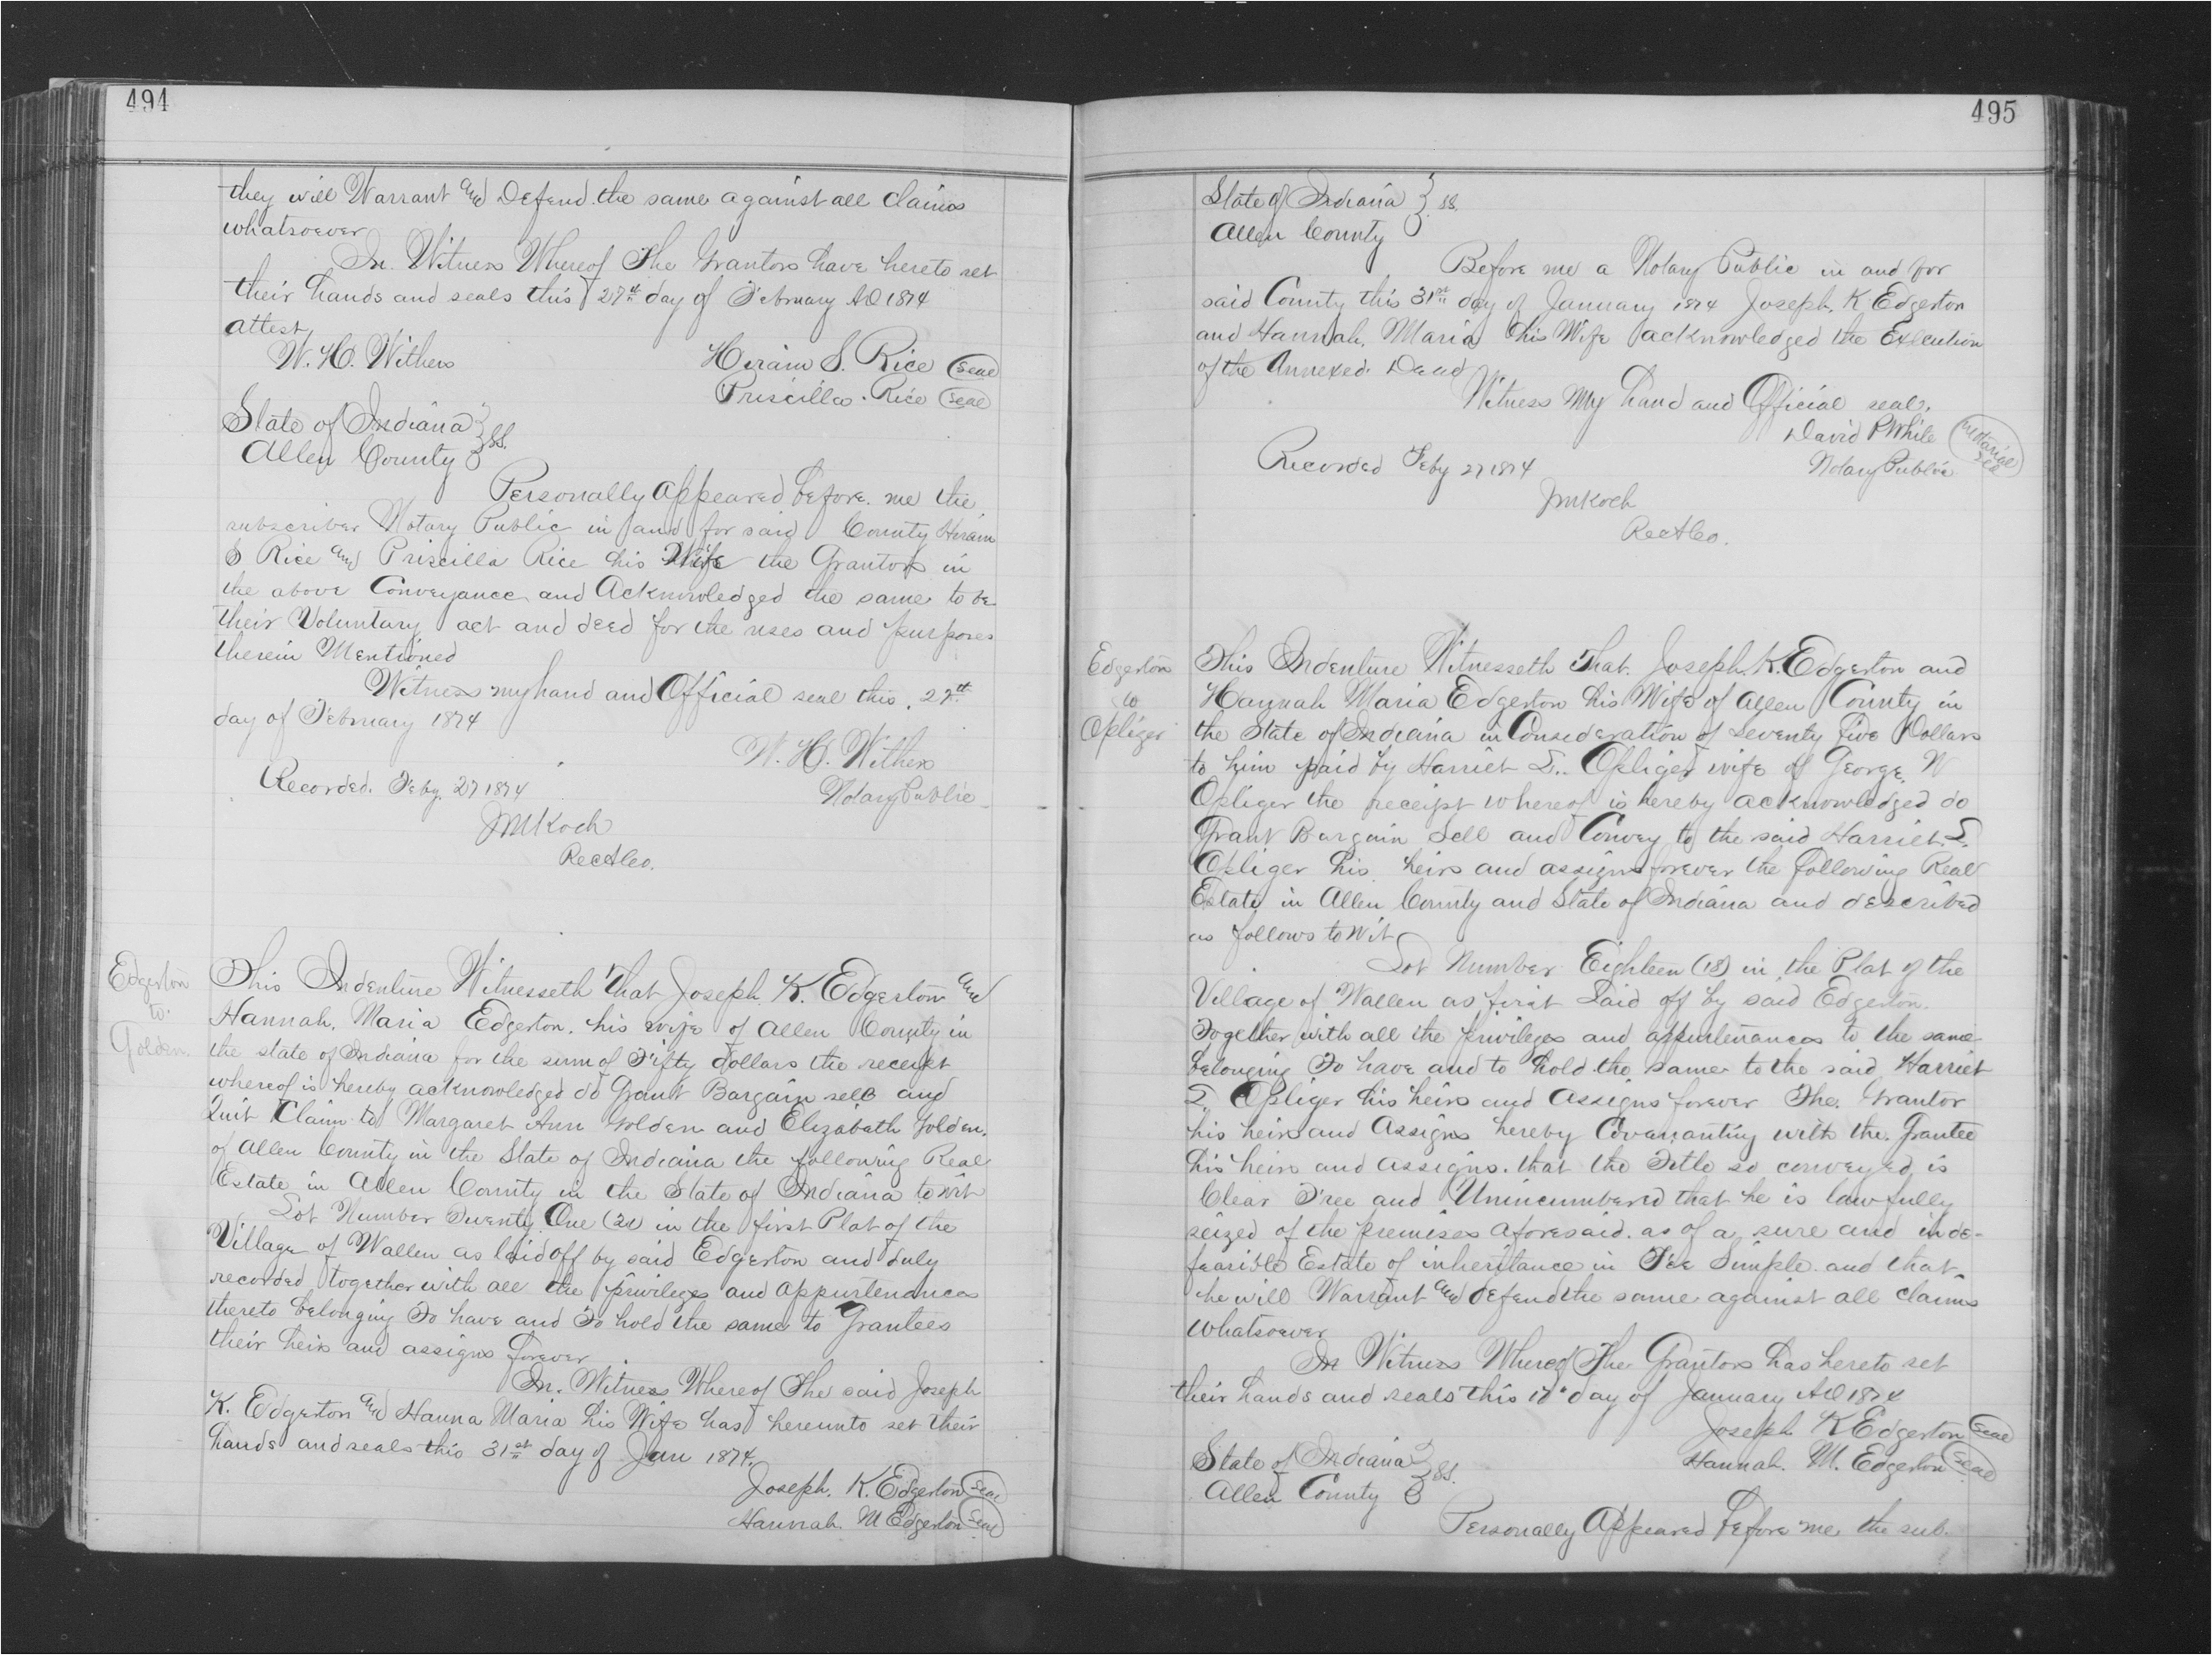 494
they will Warrant and Defend the same against all claims
whatsoever
In Witness Whereof The Grantors have hereto set
their hands and seals this 27th day of February AD 1874
attest
W. H. Withers Hiram S. Rice (Seal)
Priscilla Rice (Seal)
State of Indiana } SS.
Allen County
Personally appeared before me the
subscriber Notary Public in and for said County Hiram
S Rice and Priscilla Rice his Wife the Grantors in
the above Conveyance and Acknowledged the same to be
their Voluntary act and deed for the uses and purposes
therein Mentioned
Witness my hand and Official seal this 27th
day of February 1874
W. H. Withers
Recorded. Feby. 27 1874 Notary Public
JM Koch
RecACo.
Edgerton
to.
Golden.
This Indenture Witnesseth That Joseph K. Edgerton and
Hannah. Maria Edgerton. his wife of Allen County in
the state of Indiana for the sum of Fifty dollars the receipt
whereof is hereby acknowledged do Grant Bargain sell and
Quit Claim to Margaret Ann Golden and Elizabeth Golden.
of Allen County in the State of Indiana the following Real
Estate in Allen County in the State of Indiana to wit
Lot Number Twenty One (21) in the first Plat of the
Village of Wallen as laid off by said Edgerton and duly
recorded together with all the privileges and appurtenances
thereto belonging To have and To hold the same to Grantees
their heirs and assigns forever
In. Witness Whereof The said Joseph
K. Edgerton and Hanna Maria his Wife has hereunto set their
hands and seals this 31st day of Jan 1874.
Joseph. K. Edgerton (Seal)
Hannah. M Edgerton (Seal)
495
State of Indiana } SS.
Allen County
Before me a Notary Public in and for
said County this 31st day of January 1874 Joseph. K Edgerton
and Hannah. Maria his Wife acknowledged the Execution
of the Annexed. Deed
Witness My hand and Official seal.
David P White (Notarial Seal)
Recorded Feby 27 1874 Notary Public
JM Koch
RecACo.
Edgerton
to
Opliger
This Indenture Witnesseth That. Joseph. K. Edgerton and
Hannah Maria Edgerton his Wife of Allen County in
the State of Indiana in Consideration of seventy Five Dollars
to him paid by Harriet Opliger wife of George. W
Opliger the receipt whereof is hereby acknowledged do
Grant Bargain Sell and Convey to the said Harriet
Opliger his heirs and assigns forever the following Real
Estate in Allen County and State of Indiana and described
as follows to Wit
Lot Number Eighteen (18) in the Plat of the
Village of Wallen as first Laid off by said Edgerton.
Together with all the privileges and appurtenances to the same
belonging To have and to hold the same to the said Harriet
Opliger his heirs and Assigns forever The. Grantor
his heirs and Assigns hereby Covenanting with the. Grantee
his heirs and assigns. that the Title so conveyed is
Clear Free and Unincumbered that he is lawfully
seized of the premises aforesaid. as of a sure and inde-
feasible Estate of inheritance in Fee Simple. and that
he will Warrant and defend the same against all claims
whatsoever
In Witness Whereof The Grantors has hereto set
their hands and seals this day of January AD 1874
Joseph K Edgerton (Seal)
State of Indiana } SS. Hannah. M. Edgerton (Seal)
Allen County
Personally Appeared before me the sub.